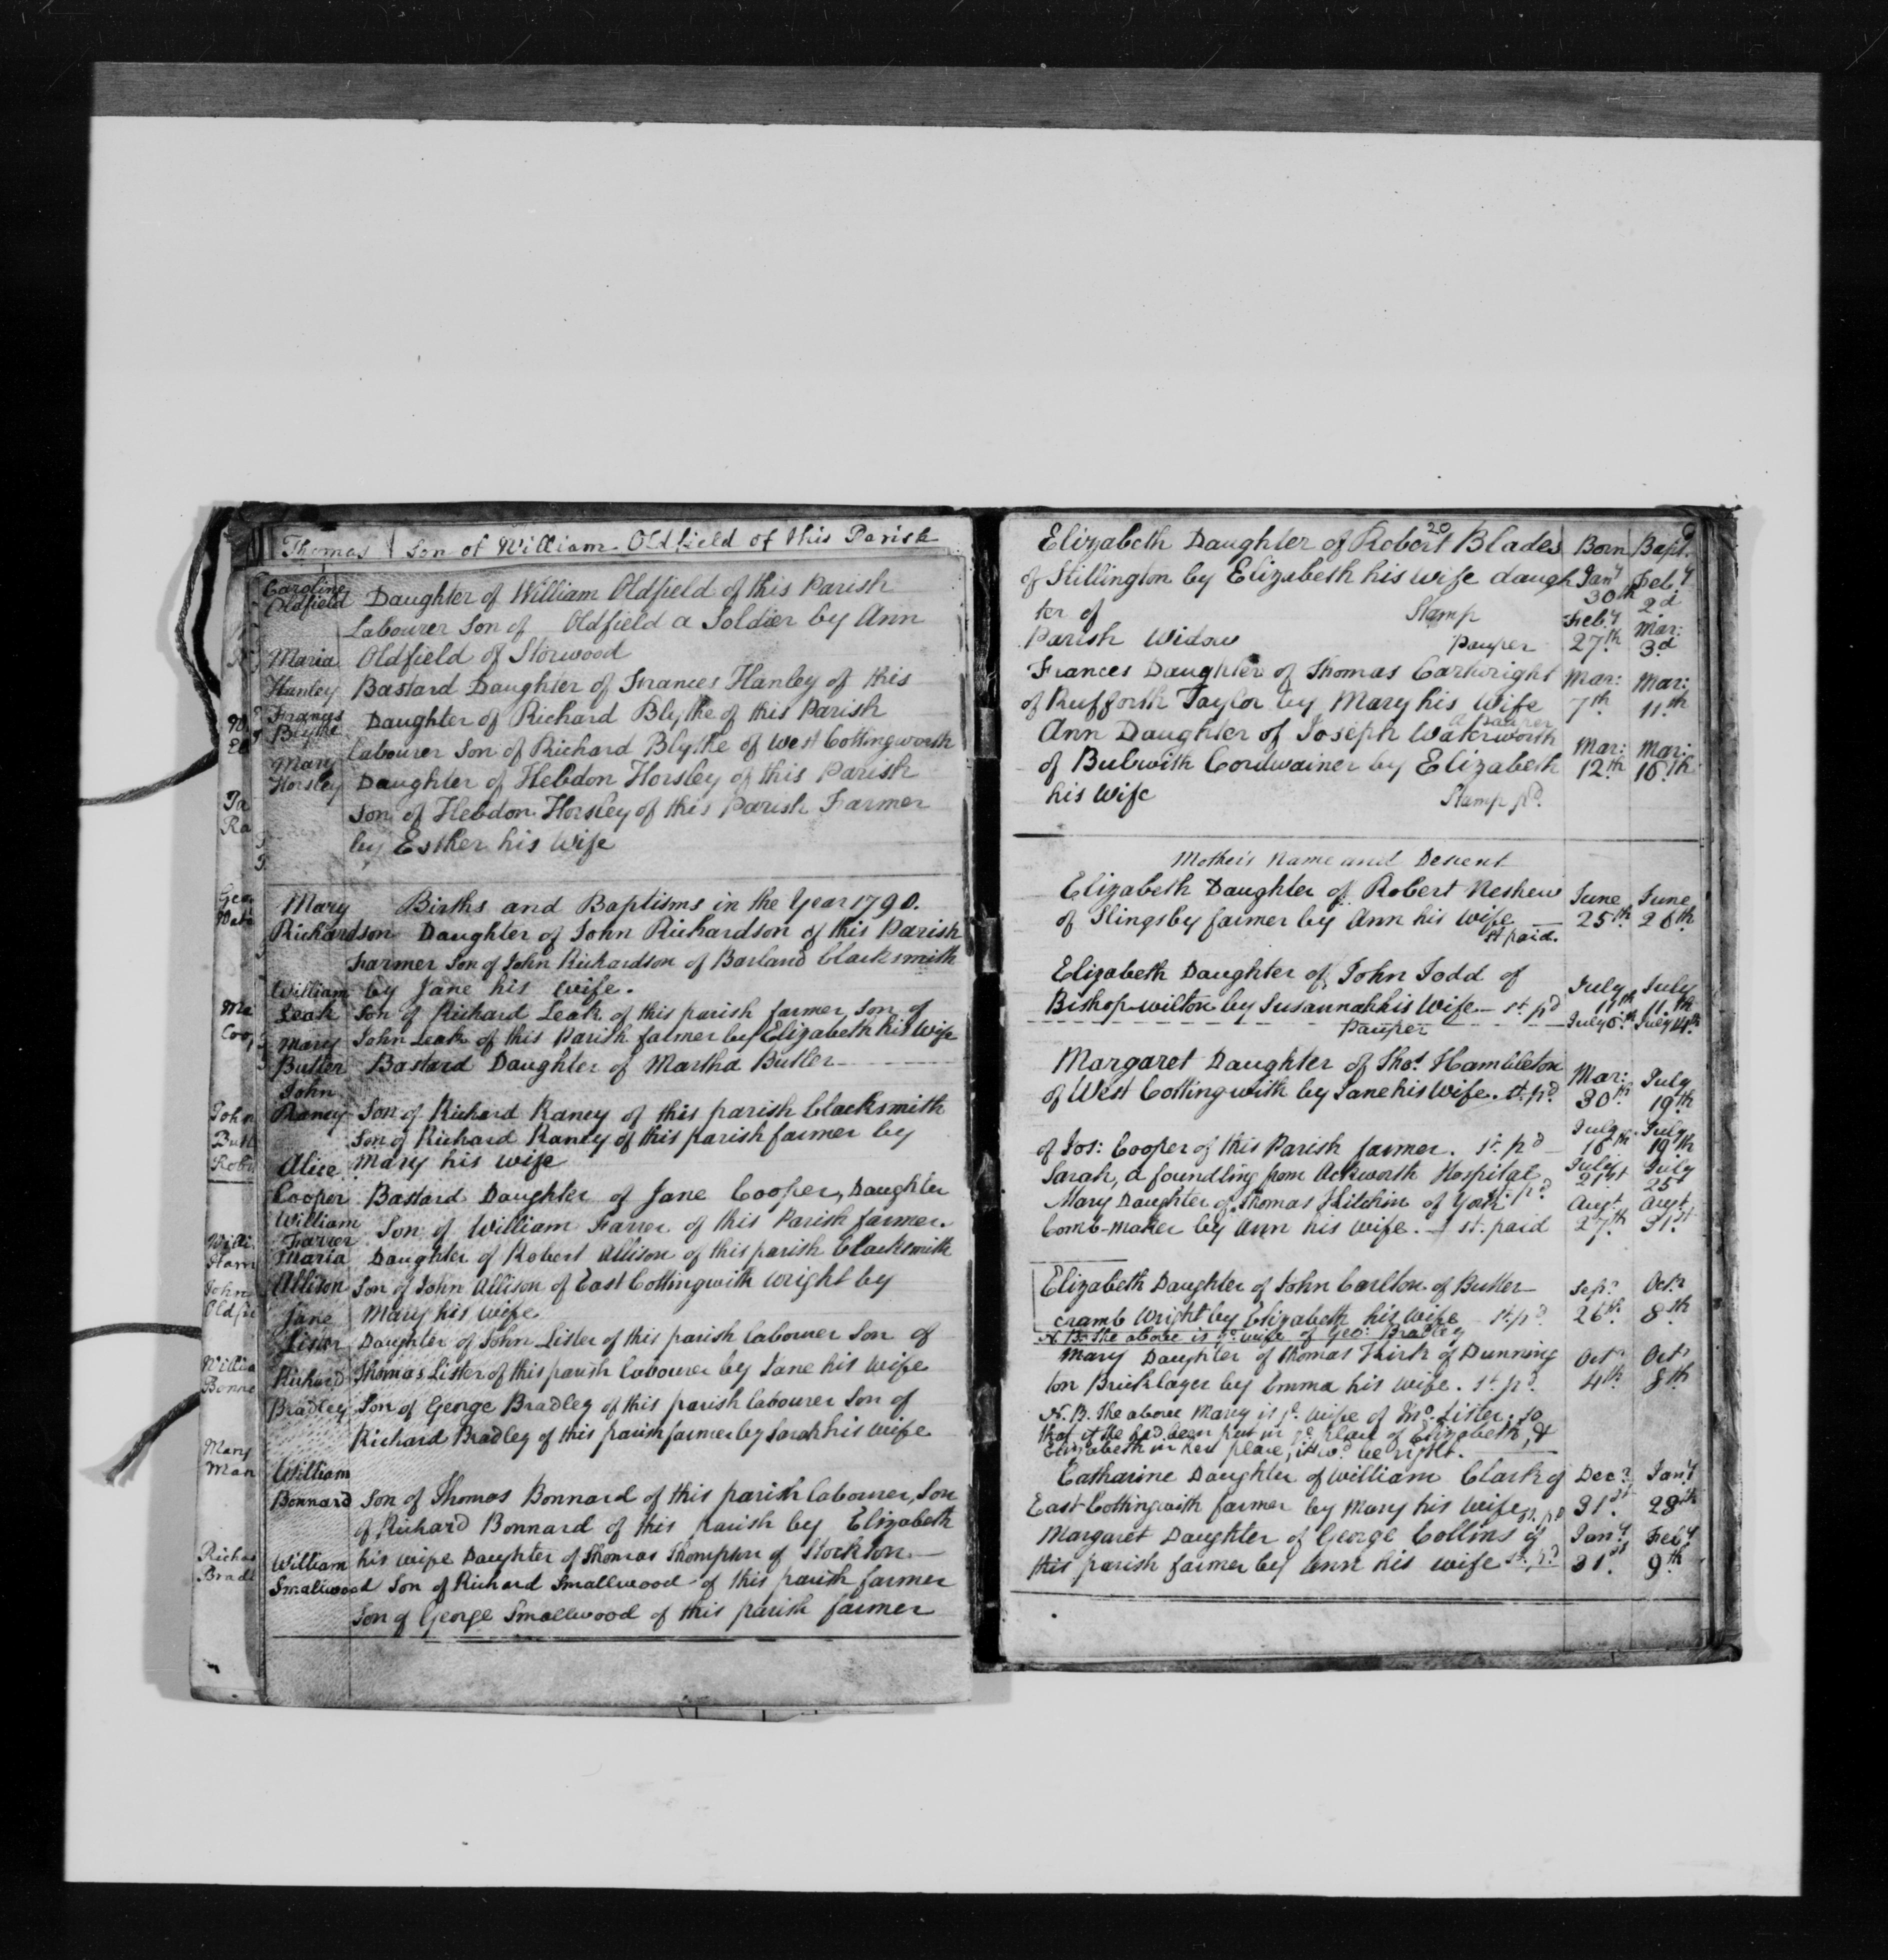 Thomas Son of William Oldfield of this Parish
Caroline
Oldfield Daughter of William Oldfield of this Parish
Labourer Son of Oldfield a Soldier by Ann
Maria Oldfield of Storwood
Hanley Bastard Daughter of Frances Hanley of this
Frances Daughter of Richard Blythe of this Parish
Blythe
labourer Son of Richard Blythe of West Cottingworth
Mary
Horsley Daughter of Hebdon Horsley of this Parish
Son of Hebdon Horsley of this Parish Farmer
by Esther his Wife
Mary Births and Baptisms in the Year 1790.
Richardson Daughter of John Richardson of this Parish
Farmer Son of John Richardson of Barland blacksmith
William by Jane his wife.
Leak Son of Richard Leak of this parish farmer, Son of
Mary John Leak of this Parish farmer by Elizabeth his Wife
Butler Bastard Daughter of Martha Butler
John
Raney Son of Richard Raney of this parish blacksmith
Son of Richard Raney of this parish farmer by
Alice Mary his wife
Cooper Bastard Daughter of Jane Cooper, Daughter
William Son of William Farrer of this Parish farmer.
Farrer
Maria Daughter of Robert Allison of this parish blacksmith
Allison Son of John Allison of East Cottingwith wright by
Jane Mary his wife
Lister Daughter of John Lister of this parish labourer Son of
Thomas Lister of this parish labourer by Jane his wife
Richard
Bradley Son of George Bradley of this parish labourer Son of
Richard Bradley of this parish farmer by Sarah his wife
William
Bonnard Son of Thomas Bonnard of this parish labourer, Son
of Richard Bonnard of this parish by Elizabeth
William his wife Daughter of Thomas Thompson of Stockton
Smallwood Son of Richard Smallwood of this parish farmer
Son of George Smallwood of this parish farmer
20
Elizabeth Daughter of Robert Blades Born Bapt.
of Stillington by Elizabeth his wife daugh Jany 30th Feby 2d
ter of Stamp
Parish Widow Pauper Feby 27th Mar: 3d
Frances Daughter of Thomas Cartwright Mar: Mar:
of Rufforth Taylor by Mary his Wife 7th 11th
a Pauper
Ann Daughter of Joseph Waterworth Mar: Mar:
of Bubwith Cordwainer by Elizabeth 12th 16th
his Wife Stamp pd.
Mother's Name and Descent
Elizabeth Daughter of Robert Neshew June June
of Slingsby farmer by Ann his wife 25th 26th
st paid.
Elizabeth Daughter of John Todd of July July
Bishop-wilton by Susannah his Wife st. pd 11th
Pauper July 14th
Margaret Daughter of Thos. Hambleton Mar: July
of West Cottingwith by Jane his Wife. st. pd. 30th 19th
July July
of Jos: Cooper of this Parish farmer. st. pd 16th 19th
Sarah, a foundling from Ackworth Hospital July 21st July 25th
Mary Daughter of Thomas Kitchin of York st. pd. Augt Augt
Comb-maker by Ann his wife. st. paid 27th 31st
Elizabeth Daughter of John Carlton of Butter Sepr. Octr.
cramb Wright by Elizabeth his Wife st. pd. 26th 8th
N.B. The above is ye wife of Geo: Bradley
Mary Daughter of Thomas Kirk of Dunning Octr Octr
ton Bricklayer by Emma his wife. st. pd. 4th 8th
N.B. The above Mary is ye wife of Jno. Lister. so
that if she had been put in ye place of Elizabeth, &
Elizabeth in her place, it wd. be right.
Catharine Daughter of William Clark of Decr. Jany
East Cottingwith farmer by Mary his wife st. pd 31st 28th
Margaret Daughter of George Collins of Jany Feby
this parish farmer by Ann his wife st. pd 31st. 9th